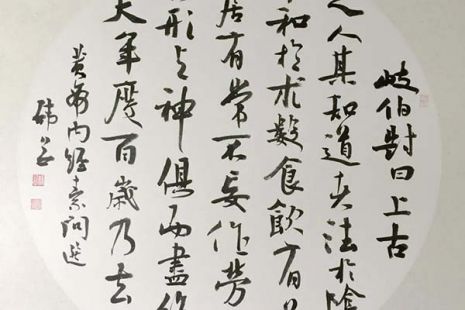 岐伯對曰上古
之人其知道者法於陰
和於术數食飲有
居有常不妄作勞
形与神俱而盡終
天年度百歲乃去
黄帝内經素問選